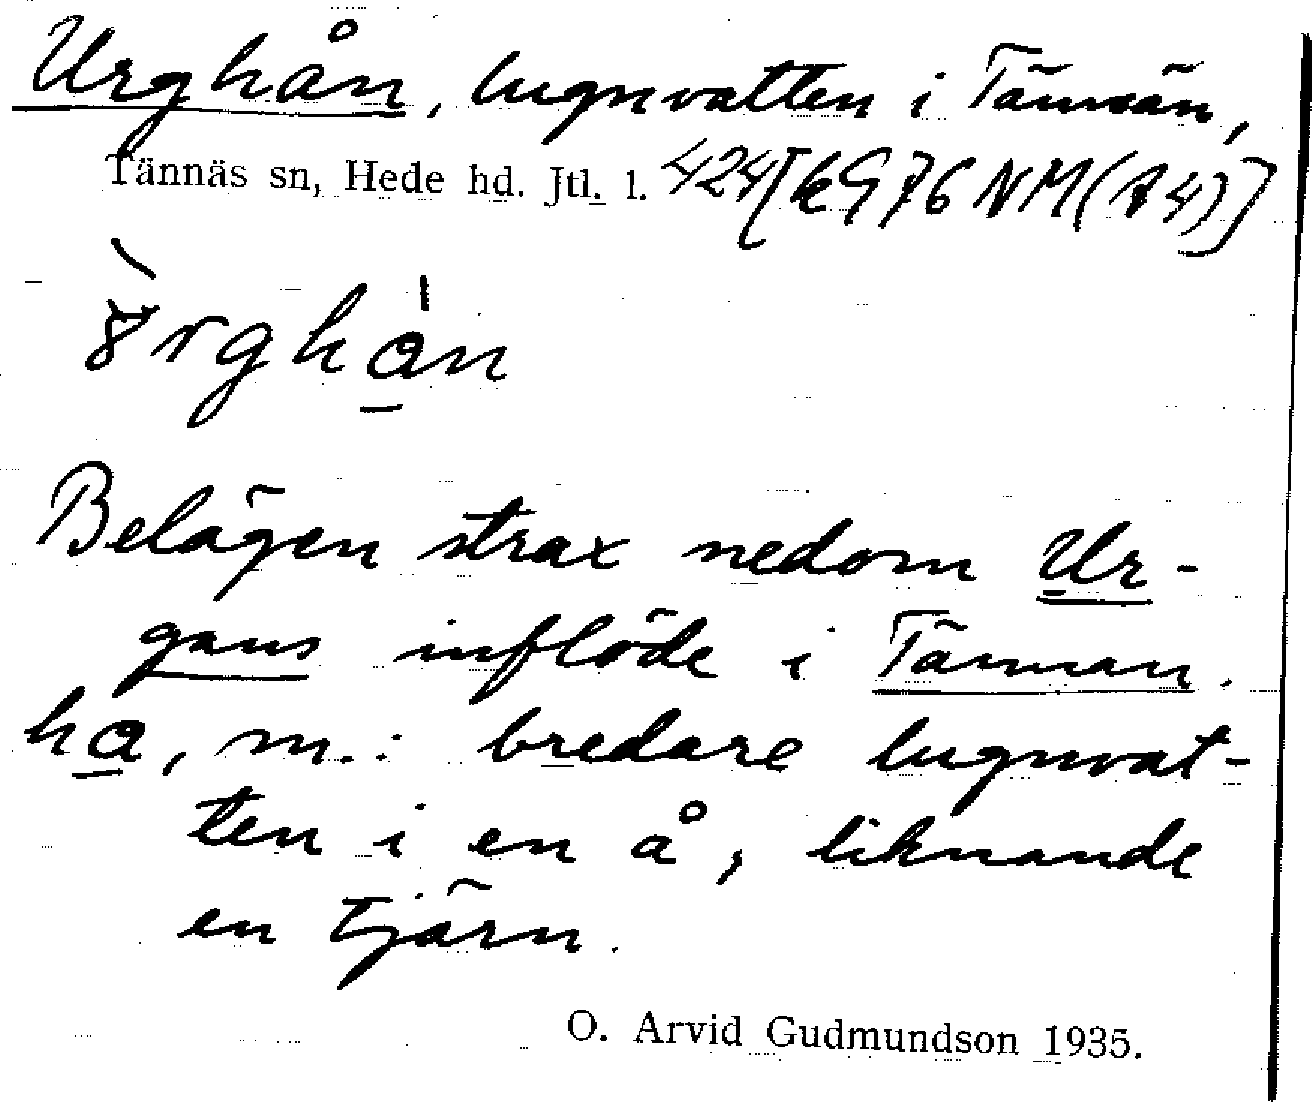 Urghån, lugnvatten i Tännån,
Tännäs sn, Hede hd. Jtl. l. 424 [6976 NM (A4)]
Belägen strax nedom Ur-
gans inflöde i Tännan.
ha, m.: bredare lugnvat-
ten i en å, liknande
en tjärn.
O. Arvid Gudmundson 1935.